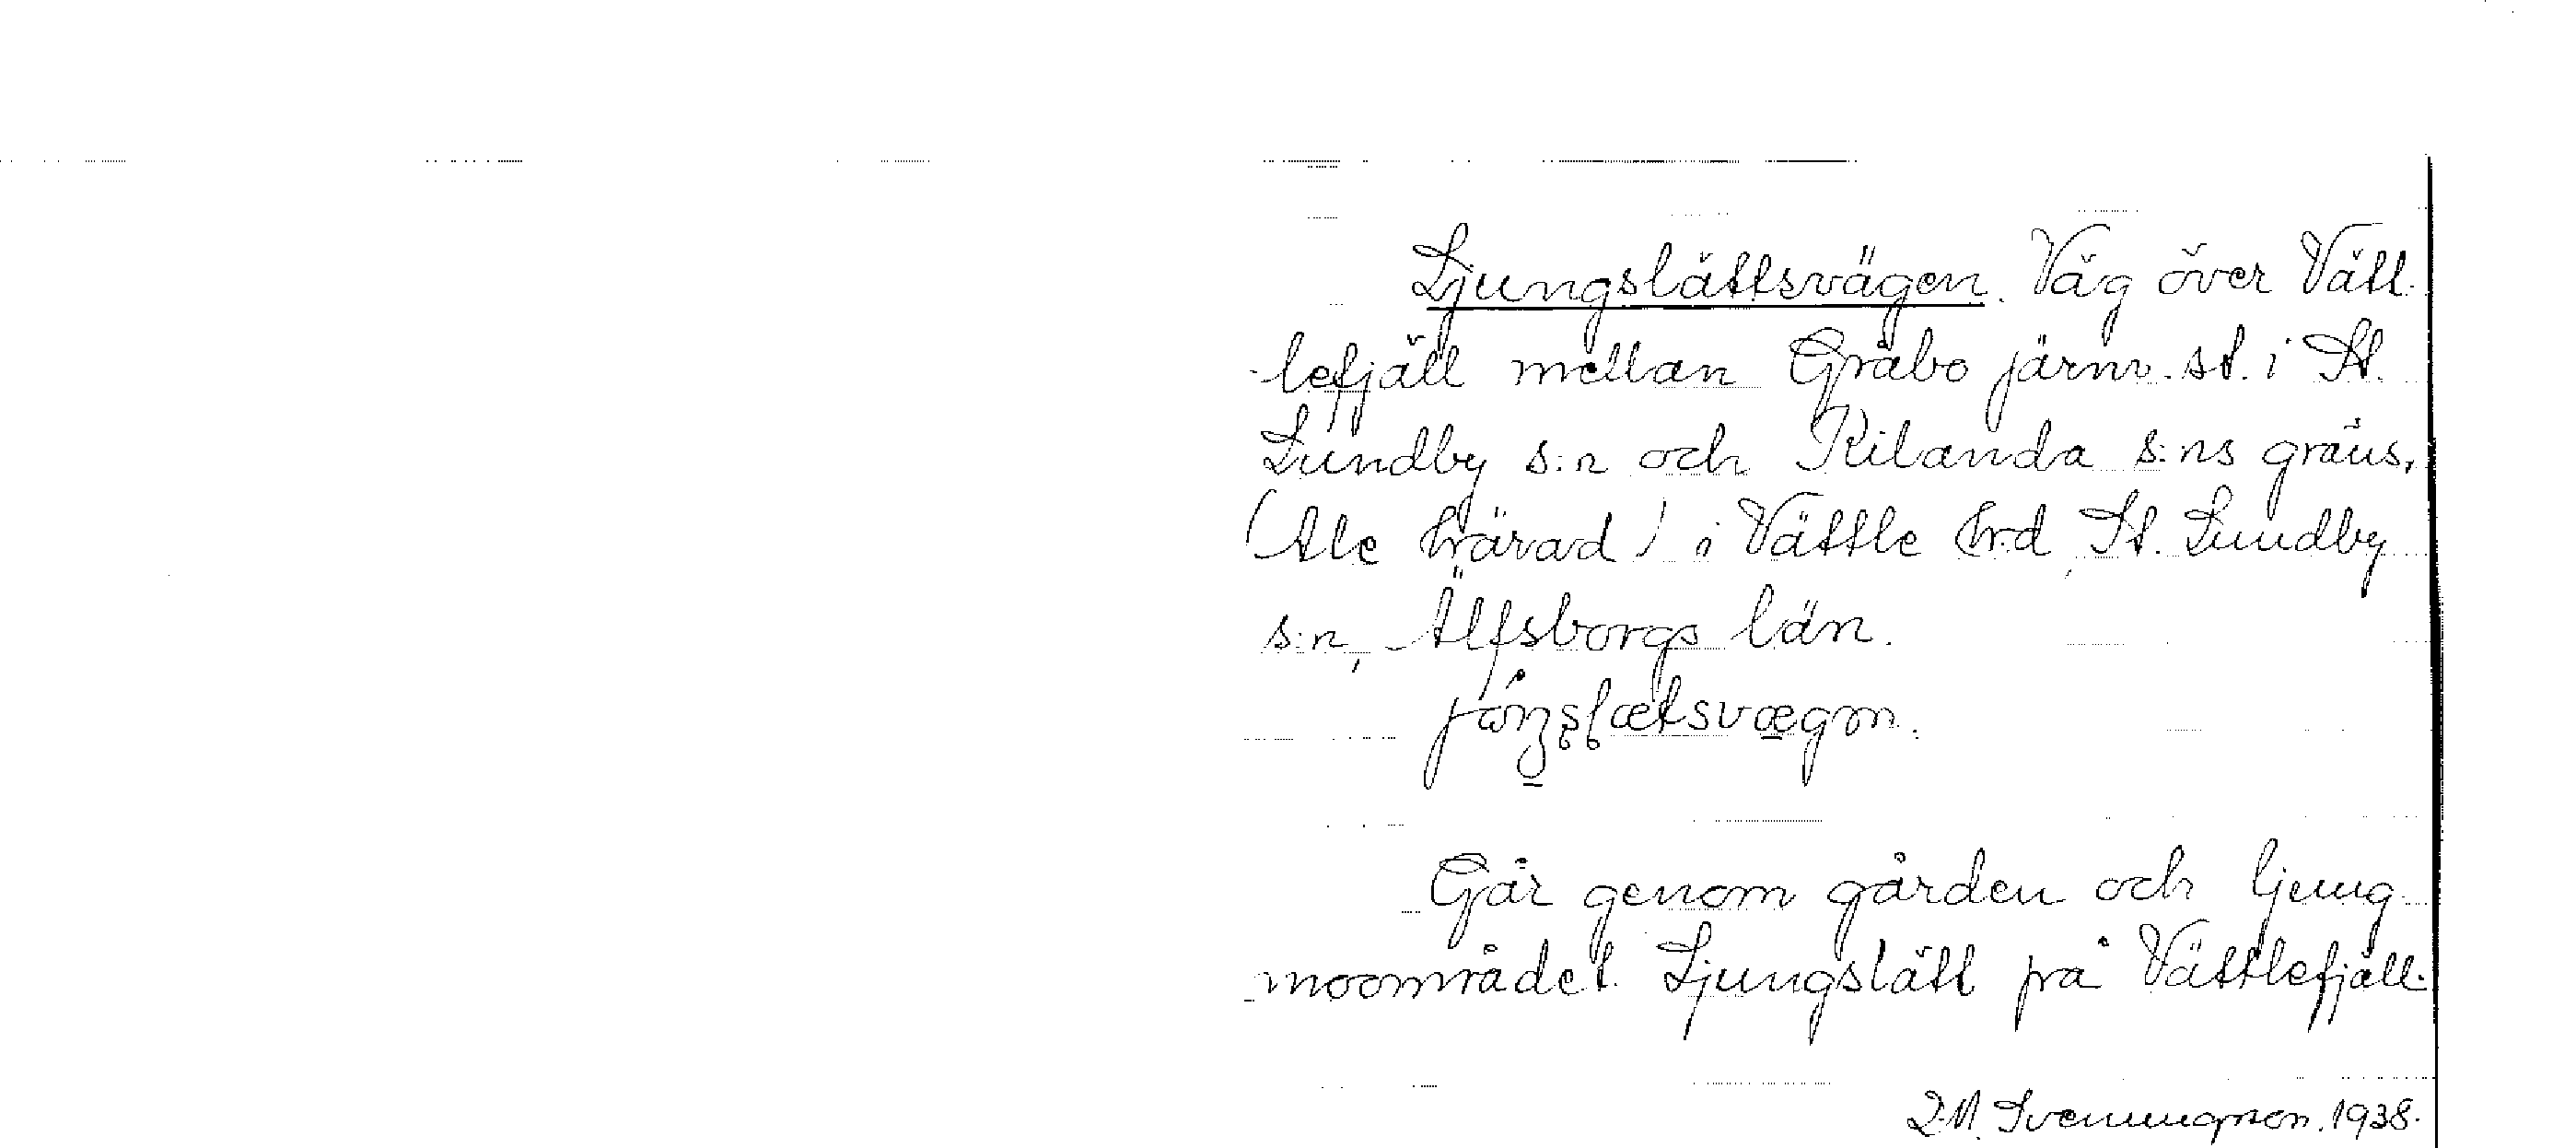 Ljungslättsvägen. Väg över Vätt-
lefjäll mellan Gråbo järnv. st. i St.
Lundby s:n och Kilanda s:ns gräns,
(Ale härad) i Vättle hrd, St. Lundby
s:n, Älfsborgs län.
Går genom gården och ljung-
moområdet Ljungslätt på Vättlefjäll.
Svenungsson. 1938.